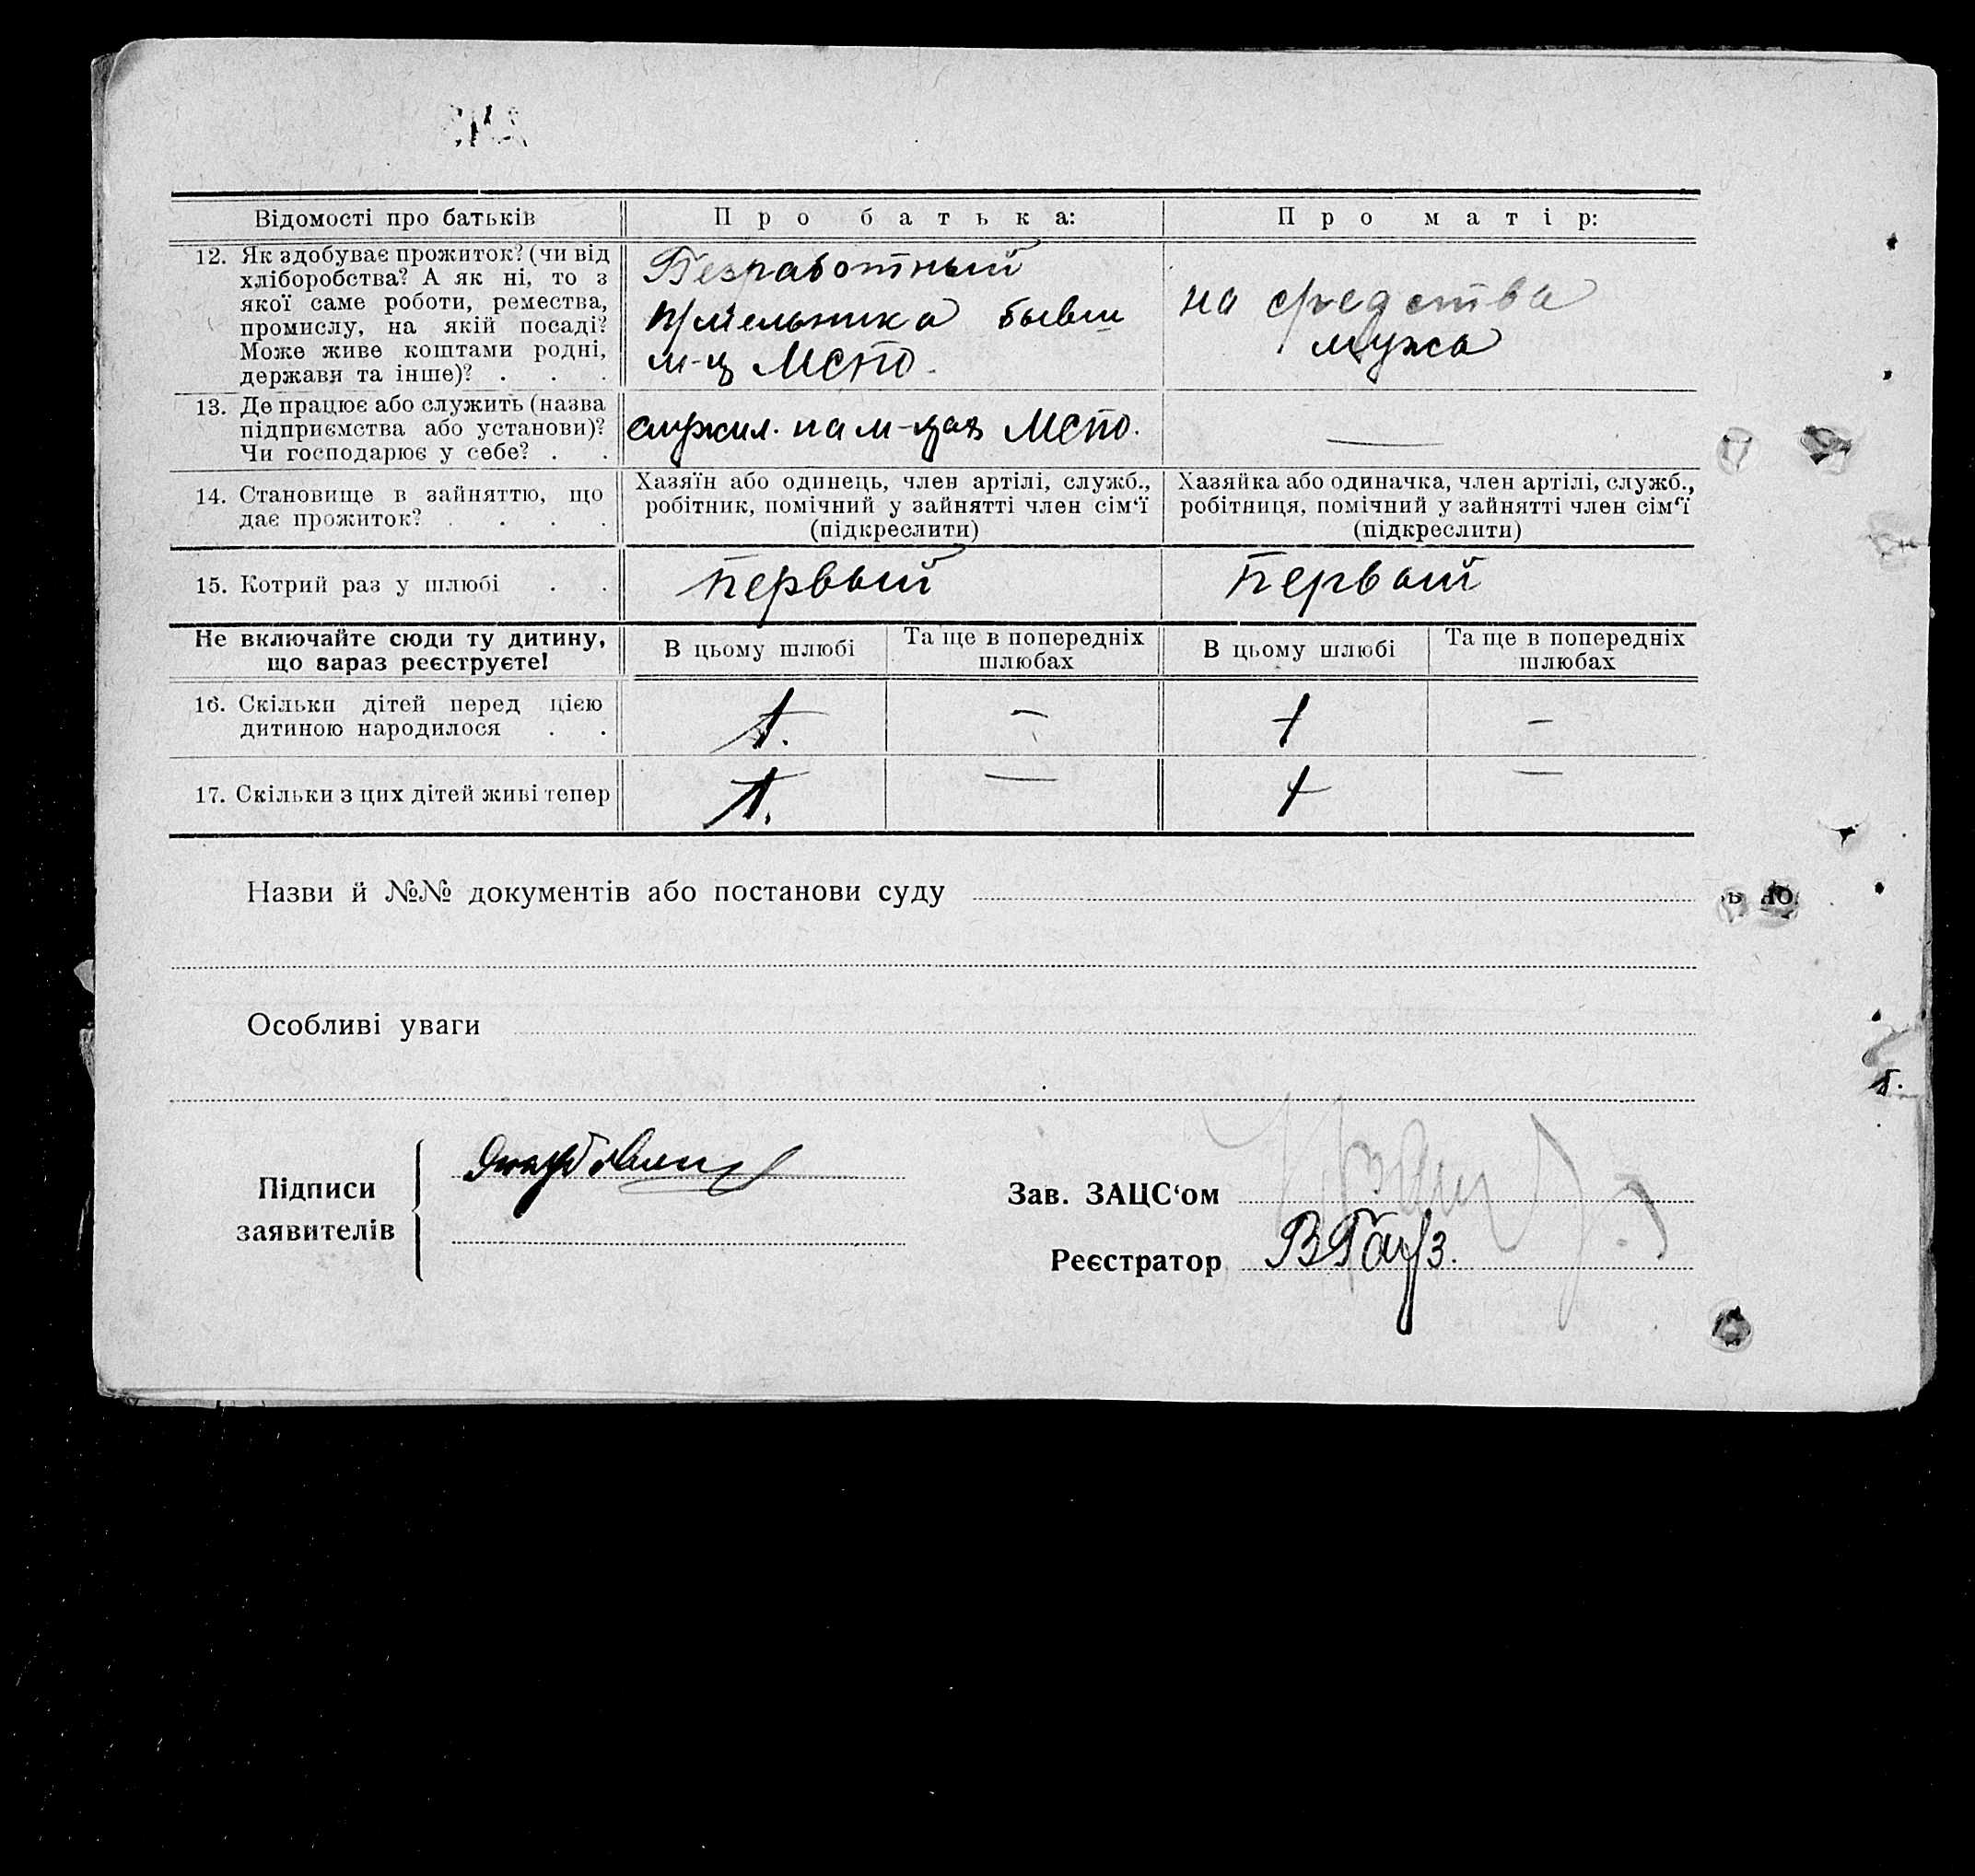 Відомості про батьків
Про батька:
Про матір:
12. Як здобуває прожиток? (чи від
хліборобства? А як ні, то з
якої саме роботи, ремества,
промислу, на якій посаді?
Може живе коштами родні,
держави та інше)? . . .
Безработный
бывш
м-ц МСПО.
на средства
мужа
13. Де працює або служить (назва
підприємства або установи)?
Чи господарює у себе? . .
служил. на МСПО.
—
14. Становище в зайняттю, що
дає прожиток? . . . .
Хазяїн або одинець, член артілі, служб.,
робітник, помічний у зайнятті член сім‘ї
(підкреслити)
Хазяйка або одиначка, член артілі, служб.,
робітниця, помічний у зайнятті член сім‘ї
(підкреслити)
15. Котрий раз у шлюбі . .
первый
первый
Не включайте сюди ту дитину,
що зараз реєструєте!
В цьому шлюбі
Та ще в попередніх
шлюбах
В цьому шлюбі
Та ще в попередніх
шлюбах
16. Скільки дітей перед цією
дитиною народилося . .
1.
—
1
—
17. Скільки з цих дітей живі тепер
1.
—
1
—
Назви й №№ документів або постанови суду
Особливі уваги
Підписи
заявителів
Зав. ЗАЦС‘ом
Реєстратор